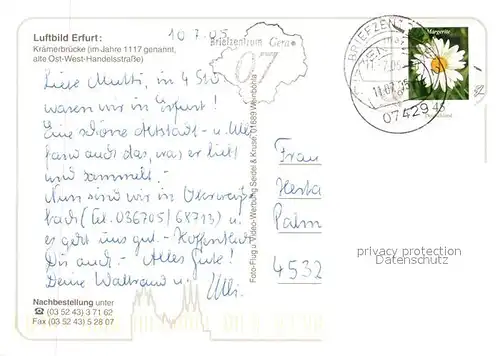 Luftbild Erfurt:
Krämerbrücke (im Jahre 1117 genannt,
alte Ost-West-Handelsstraße)
10.7.05
Briefzentrum Gera
07
BRIEFZEN
07429
Margerite
45
Deutschland
Liebe Mutti, in 4 Std
waren wir in Erfurt!
Eine schöne Altstadt - u. Ulli
fand auch das, was er liebt
und sammelt. -
Nun sind wir in Oberweiß-
bach (Tel. 036705/68713) u.
es geht uns gut. - Hoffentlich
Dir auch. - Alles Gute!
Deine Waltraud u. Ulli
Frau
Herta
Palm
4532
privacy protection
Datenschutz
Nachbestellung unter
☎ (03 52 43) 3 71 62
Fax (03 52 43) 5 28 07
Foto-Flug u. Video-Werbung Seidel & Kruse, 01689 Weinböhla